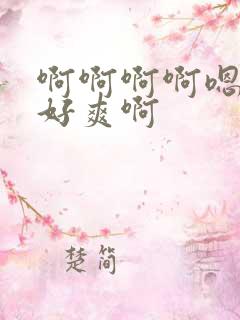 啊啊啊啊嗯
好爽啊
楚简